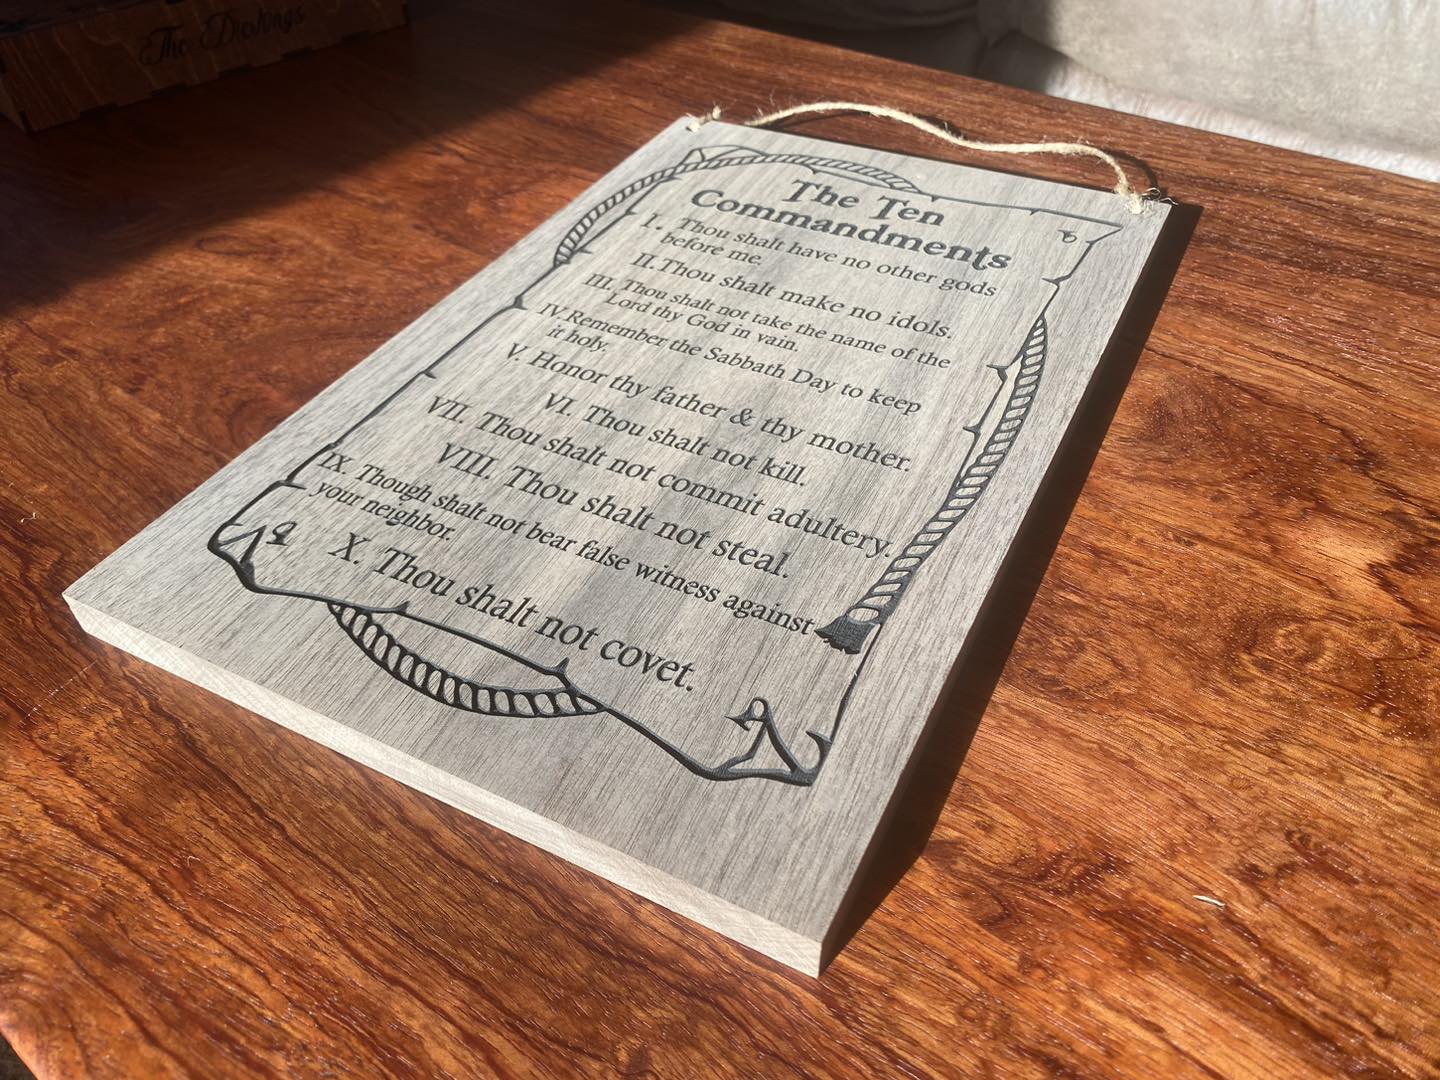 The
The Ten
Commandments
I. Thou shalt have no other gods
before me.
II. Thou shalt make no idols.
III. Thou shalt not take the name of the
Lord thy God in vain.
IV. Remember the Sabbath Day to keep
it holy.
V. Honor thy father & thy mother.
VI. Thou shalt not kill.
VII. Thou shalt not commit adultery.
VIII. Thou shalt not steal.
IX. Though shalt not bear false witness against
your neighbor.
X. Thou shalt not covet.